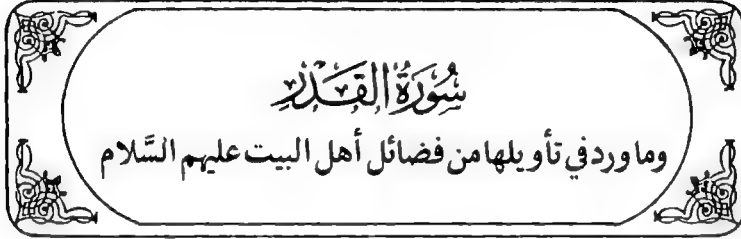 سُورَةُ القَدْرِ
وما ورد في تأويلها من فضائل أهل البيت عليهم السَّلام